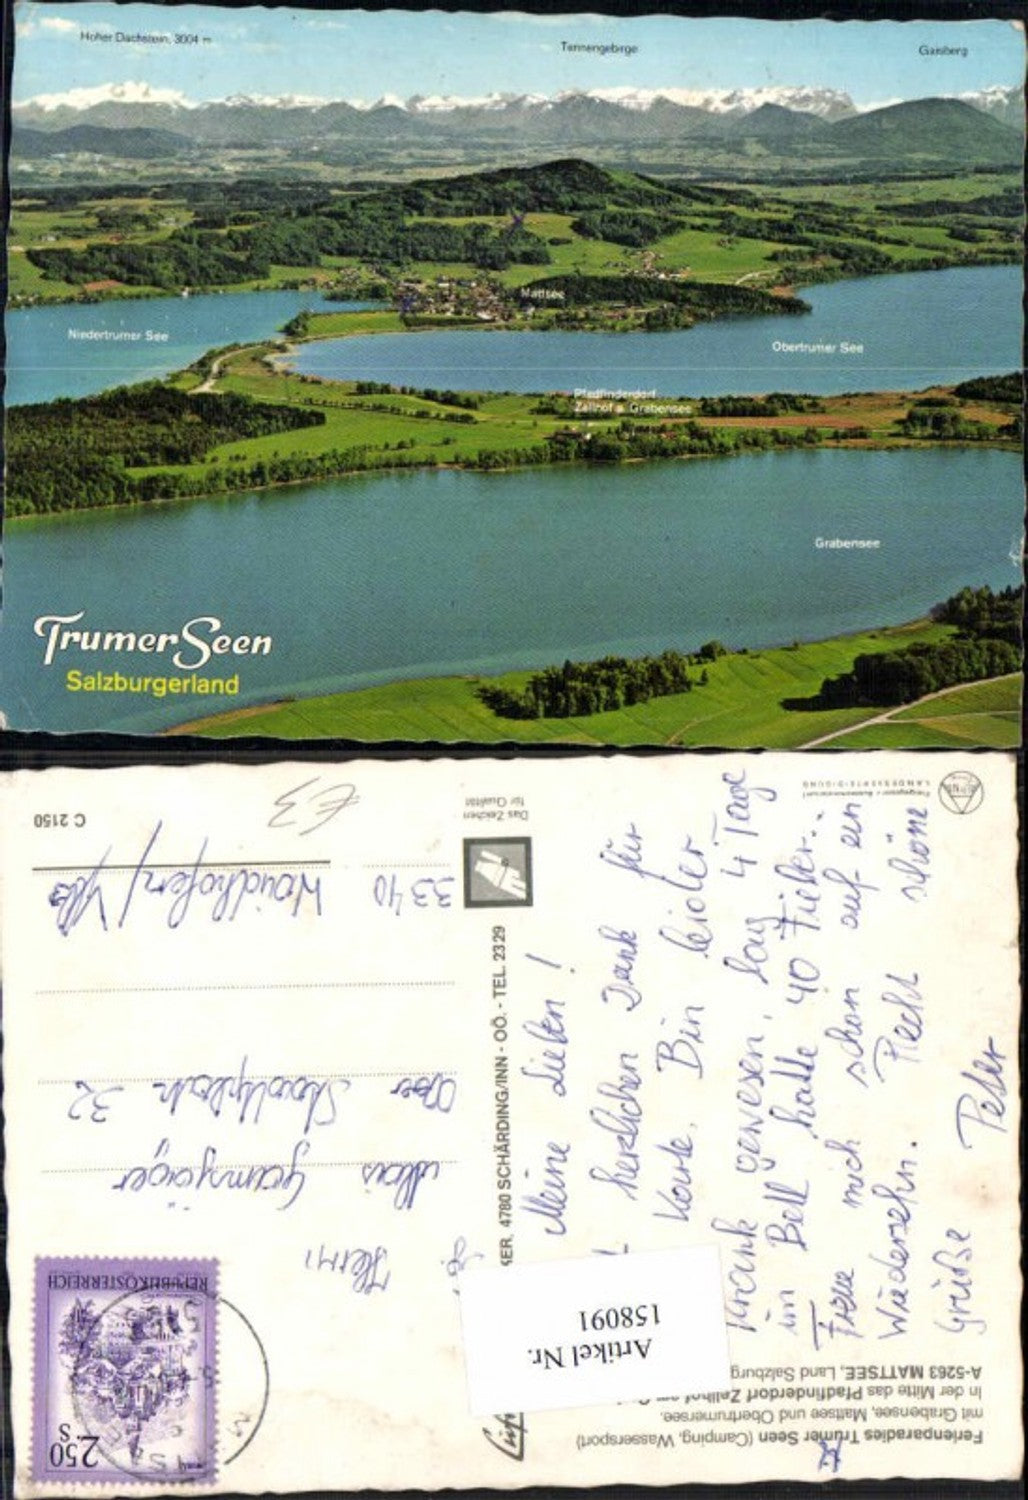 Hoher Dachstein, 3004 m
Tennengebirge
Gaisberg
Mattsee
Niedertrumer See
Obertrumer See
Pfadfinderdorf
Zellhof a. Grabensee
Grabensee
Trumer Seen
Salzburgerland
Ferienparadies Trumer Seen (Camping, Wassersport)
mit Grabensee, Mattsee und Obertrumersee.
In der Mitte das Pfadfinderdorf Zellhof am
A-5263 MATTSEE, Land Salzburg
Artikel Nr.
158091
Meine Lieben!
herzlichen Dank für
Karte. Bin leider
krank gewesen, lag 4 Tage
im Bett hatte 40 Fieber..
Freue mich schon auf ein
Wiedersehn. Recht schöne
Grüße Peter
4780 SCHÄRDING/INN - OÖ. - TEL. 2329
Das Zeichen
für Qualität
LANDESVERTEIDIGUNG
2.50 S
REPUBLIK ÖSTERREICH
Hermi
Gamsjäger
Ober Stadtplatz 32
3340 Waidhofen/Ybbs
C 2150
€3